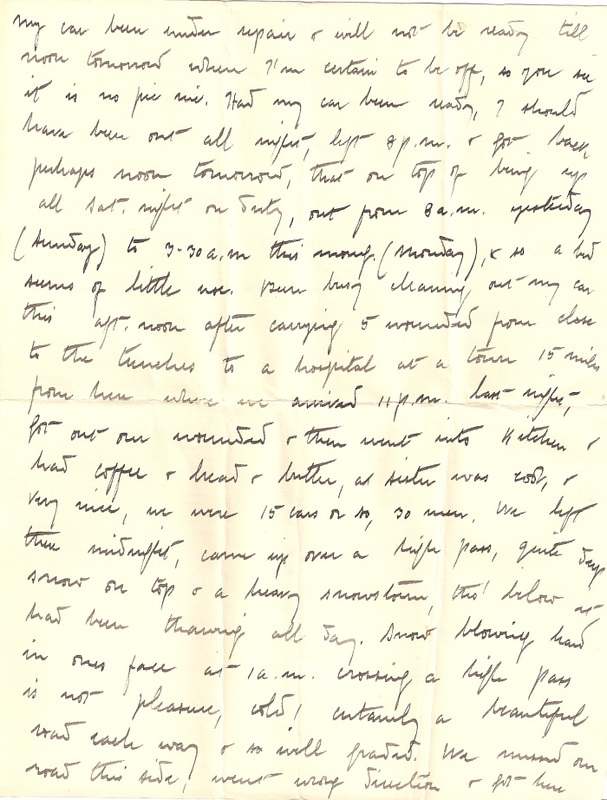 my car been under repair & will not be ready till
noon tomorrow when I'm certain to be off, so you see
it is no pic nic. Had my car been ready, I should
have been out all night, left 8 p.m. & got back,
perhaps noon tomorrow, that on top of being up
all Sat. night on duty, out from 8 a.m. yesterday
(Sunday) to 3-30 a.m this morng. (Monday), & so a bed
seems of little use. Been busy cleaning out my car
this aft. noon after carrying 5 wounded from close
to the trenches to a hospital at a town 15 miles
from here where we arrived 11 p.m. last night,
Got out our wounded & then went into Kitchen &
had coffee & bread & butter, as sister was cook, &
very nice, we were 15 cars or so, 30 men. We left
there midnight, came up over a high pass, quite deep
snow on top & a heavy snowstorm, tho' below it
had been thawing all day. Snow blowing hard
in ones face at 1 a.m. crossing a high pass
is not pleasure, cold! certainly a beautiful
road each way & so well graded. We missed our
road this side, went wrong direction & got here